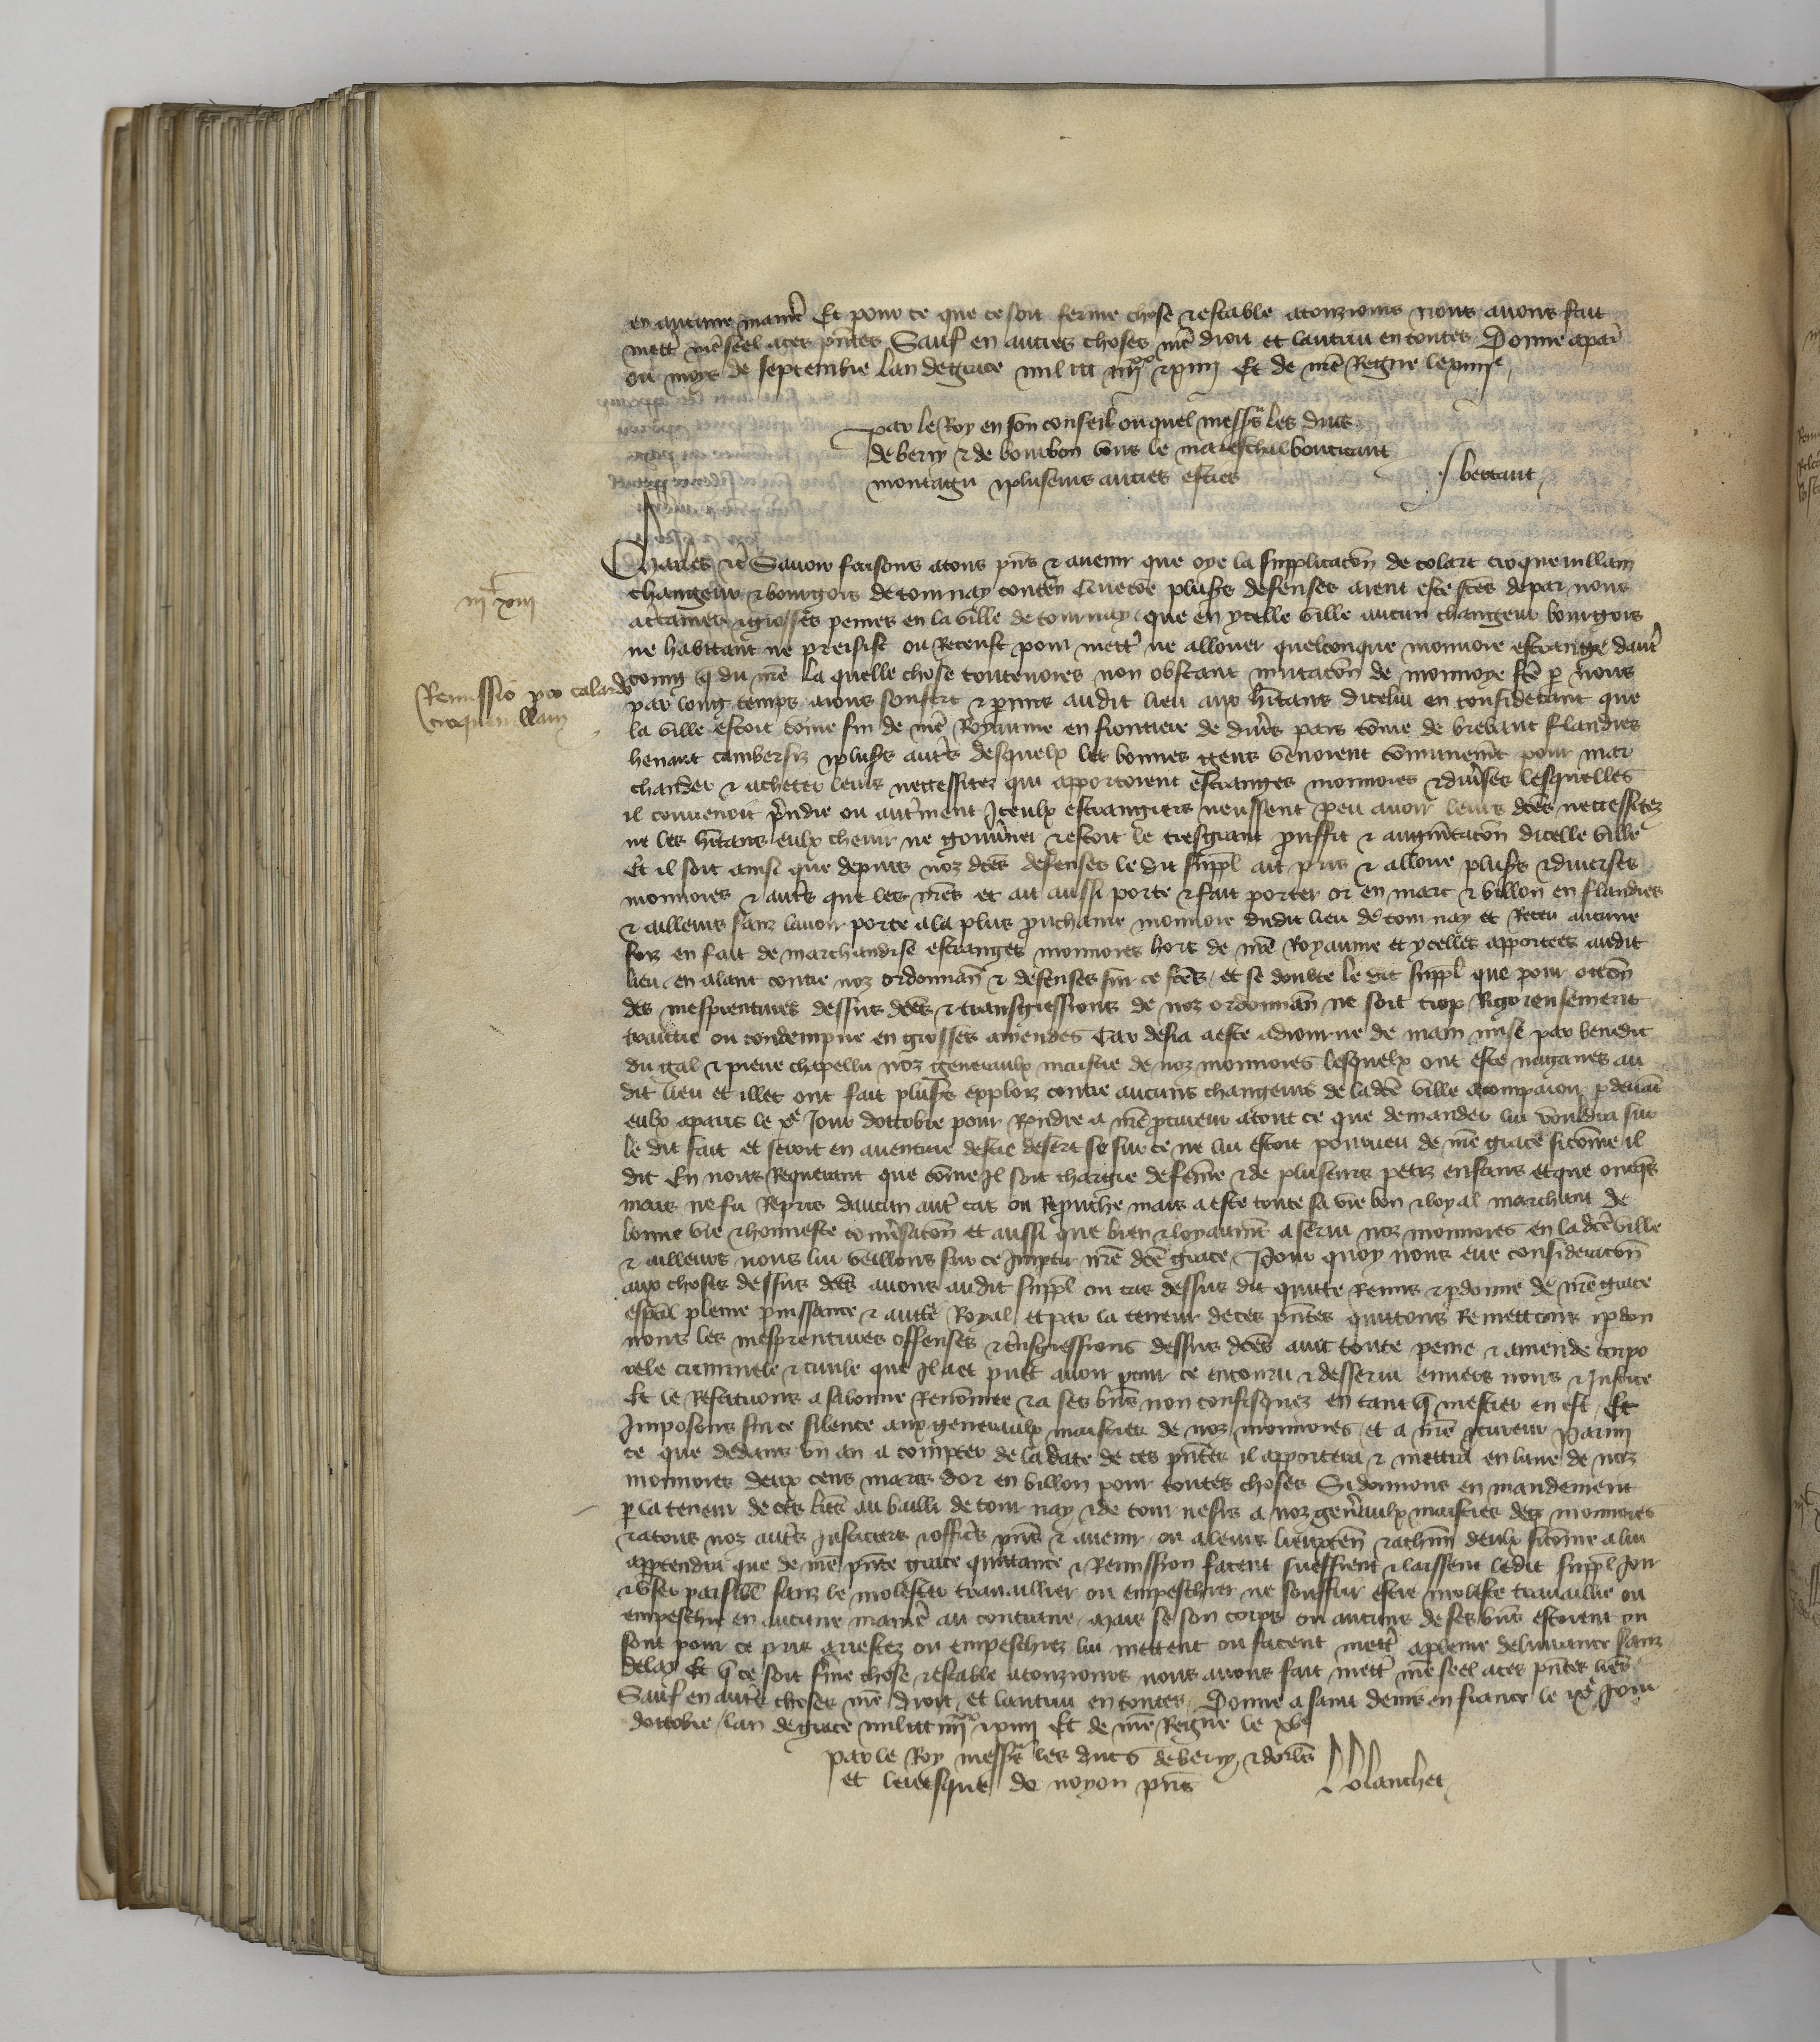 en aucune manie᷑ Et pour ce que ce soit ferme chose & estable atouzjours nous avons fait
mett᷑ nr̃e seel a ces pñtes Sauf en autres choses nr̃e droit et lautrui en toutes Donne a par᷑
ou moys de septembre lan de grace mil ccc iiijxx & xiiij Et de nr̃e Regne le xiiije
par le Roy en son conseil ouquel messrs les ducs
de berry & de bourbon vous le mareschal bouticaut
montagu & pluseurs autres esties
bertaut
Charles &c Savoir faisons a tous pñs & avenir que oye la supplicacõn de colart croquevillain
changeur & bourgois de tournay conteñ Que cõe plus᷑s defenses aient este fc̃es de par nous
a c̃taines & grosses peines en la ville de tournay que en ycelle ville aucun changeur bourgois
ne habitant ne preisist ou Receust pour mett᷑ ne allouer quelconque monnoie estrange daut᷑
coing q̃ du nr̃e La quelle chose toutevoies non obstant mutacõn de monnoye fc̃e p nous
iiijc xiiij
Remissio pro calardo
croquevillain
par long temps avons souffert & pmis audit lieu aux hĩtans dicelui en considerant que
la ville estoit cõme fin de nr̃e Royaume en frontiere de div᷑s pais cõme de brebant flandres
henaut cambersiz & plus᷑s aut᷑s desquelx les bonnes gens venoient cõmunem̃t pour mar
chander & acheter leurs neccessitez qui apportoient estranges monnoies & div᷑ses lesquelles
il convenoit p̃ndre ou aut᷑ment Iceulx estrangiers neussent peu avoir leurs dc̃es neccessitez
ne les hĩtans eulx chevir ne gouv᷑ner & estoit le tresgrant prouffit & augm̃tacõn dicelle ville
Et il soit ainsi que depuis noz dc̃es defenses le dit suppl᷑ ait pris & alloue plus᷑s & diverses
monnoies & aut᷑s que les nr̃es et ait aussi porte & fait porter or en marc & billon en flandres
& ailleurs sanz lavoir porte a la plus prochaine monnoie dudit lieu de tournay et Receu aucune
foiz en fait de marchandise estranges monnoies hors de nr̃e Royaume et ycelles apportees audit
lieu en alant contre noz ordonnañ & defenses sur ce fc̃es et se doubte le dit suppl᷑ que pour occõn
des mesprentures dessus dc̃es & transgressions de noz ordonnañ ne soit trop Rigoreusement
traictie ou condempne en grosses amendes Car desia a este adiourne de main mise par benedic
du gal & pierre chapellu noz generaulx maistre de noz monnoies lesquelx ont este nagaires au
dit lieu et illec ont fait plus᷑s exploiz contre aucuns changeurs de ladc̃e ville a comparoir p devãt
eulx a paris le xe Jour doctobre pour Rendre a nr̃e pcureur a tout ce que demander lui vouldra sur
le dit fait et seroit en aventure destre desert se sur ce ne lui estoit pourveu de nr̃e grace sicõme il
dit En nous Requerant que cõme Il soit chargie de fem̃e & de pluseurs petiz enfans et que oncq̃s
mais ne fu Repris daucun aut᷑ cas ou Reprouche mais a este toute sa vie bon & loyal marchant de
bonne vie & honneste conv᷑sacõn et aussi que bien & loyaum̃t a servi noz monnoies en la dc̃e ville
& ailleurs nous lui vueillons sur ce Impartir nr̃e dc̃e grace Pour quoy nous eue consideracõn
aux choses dessus dc̃es avons audit suppl᷑ ou cas dessus dit quitte Remis & pdonne de nr̃e grace
esp̃al pleine puissance & auctte Royal et par la teneur de ces pñtes quittons Remettons & pdon
nons les mesprentures offenses & t̃nsgressions dessus dc̃es avec toute peine & amende corpo
rele criminele & civile que Il a et puet avoir pour ce encouru & desservi envers nous & Justice
Et le Restituons a sa bonne Renõmee & a ses biẽs non confisquez en tant q̃ mestier en est Et
Imposons sur ce silence aux generaulx maistres de noz monnoies et a nr̃e pcureur Parmi
ce que dedans un an a compter de la date de ces pñtes il apportera & mettra en lune de noz
monnoies deux cens mars dor en billon pour toutes choses Si donnons en mandement
p la teneur de ces lr̃es au bailli de tournay & de tournesis a noz gen᷑aulx maistres des monnoies
& a tous noz aut᷑s Justiciers & offic᷑s pñs & avenir ou a leurs lieuxteñ & a chũn deulx sicõme a lui
appartendra que de nr̃e pñte grace quittance & Remission facent sueffrent & laissent ledit suppl᷑ Joir
& user paisiblẽ sanz le molester travaillier ou empeschier ne souffrir estre moleste travaillie ou
empeschie en aucune manie᷑ au contraire mais se son corps ou aucuns de ses biẽs estoient ou
sont pour ce pris arrestez ou empeschiez lui mettent ou facent mett᷑ a pleine delivrance sanz
delay Et q̃ ce soit ferme chose & estable a touzjours nous avons fait mett᷑ nr̃e seel a ces pñtes lr̃es
Sauf en aut᷑s choses nr̃e droit et lautrui en toutes Donne a saint denis en france le ixe Jour
doctobre lan de grace mil ccc iiijxx & xiiij Et de nr̃e Regne le xve
par le Roy messrs les ducs de berry & dorl᷑s
et levesque de noyon pñs
blanchet